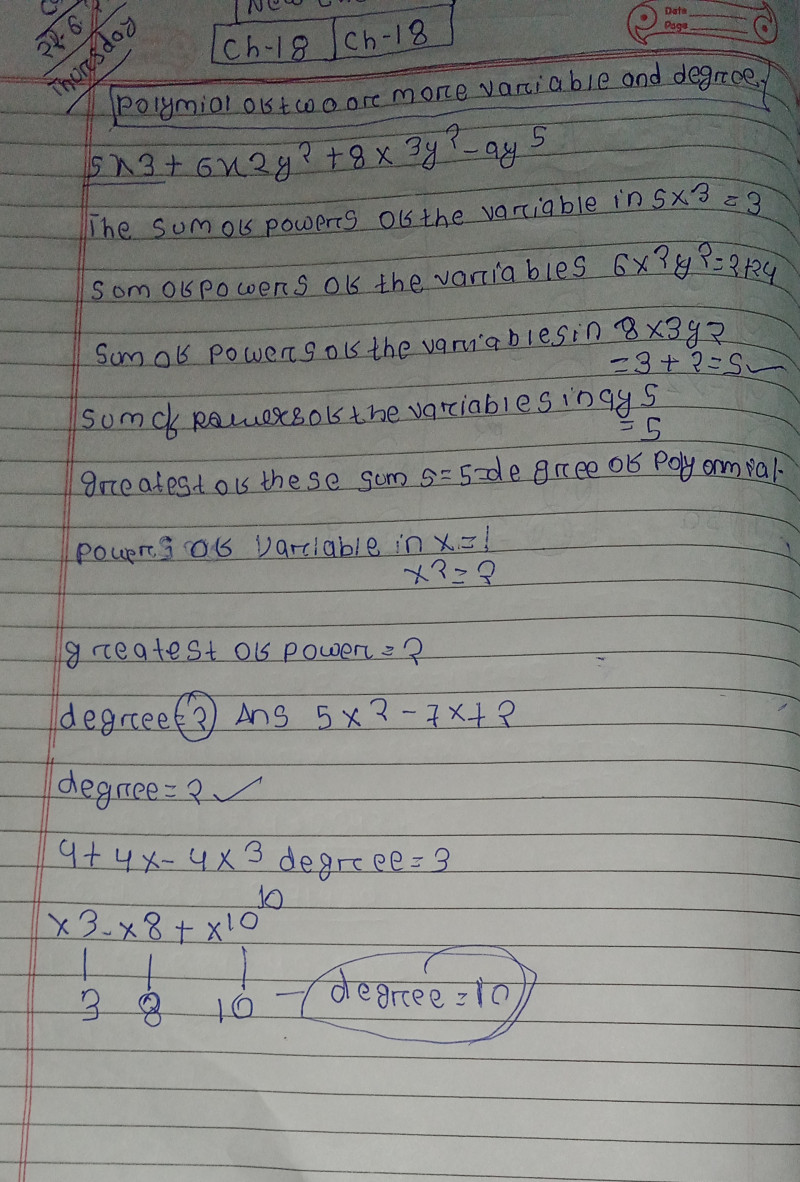 New
22.6.
Thursday
Ch-18 Ch-18
Date
Page
polymial of two are more variable and degree.
5x3 + 6x2y2 + 8x3y2 - 9y5
The sum of powers of the variable in 5x3 = 3
som of powers of the variables 6x2y2 = 2+24
sum of powers of the variables in 8x3y2
= 3 + 2 = 5
sum of powers of the variables in 9y5
= 5
greatest of these sum s = 5 = degree of polyomial.
powers of variable in x = 1
x2 = 2
greatest of power = 2
degree = 2 Ans 5x2 - 7x + 2
degree = 2
4 + 4x - 4x3 degree = 3
10
x3 - x8 + x10
3 8 10 - degree = 10